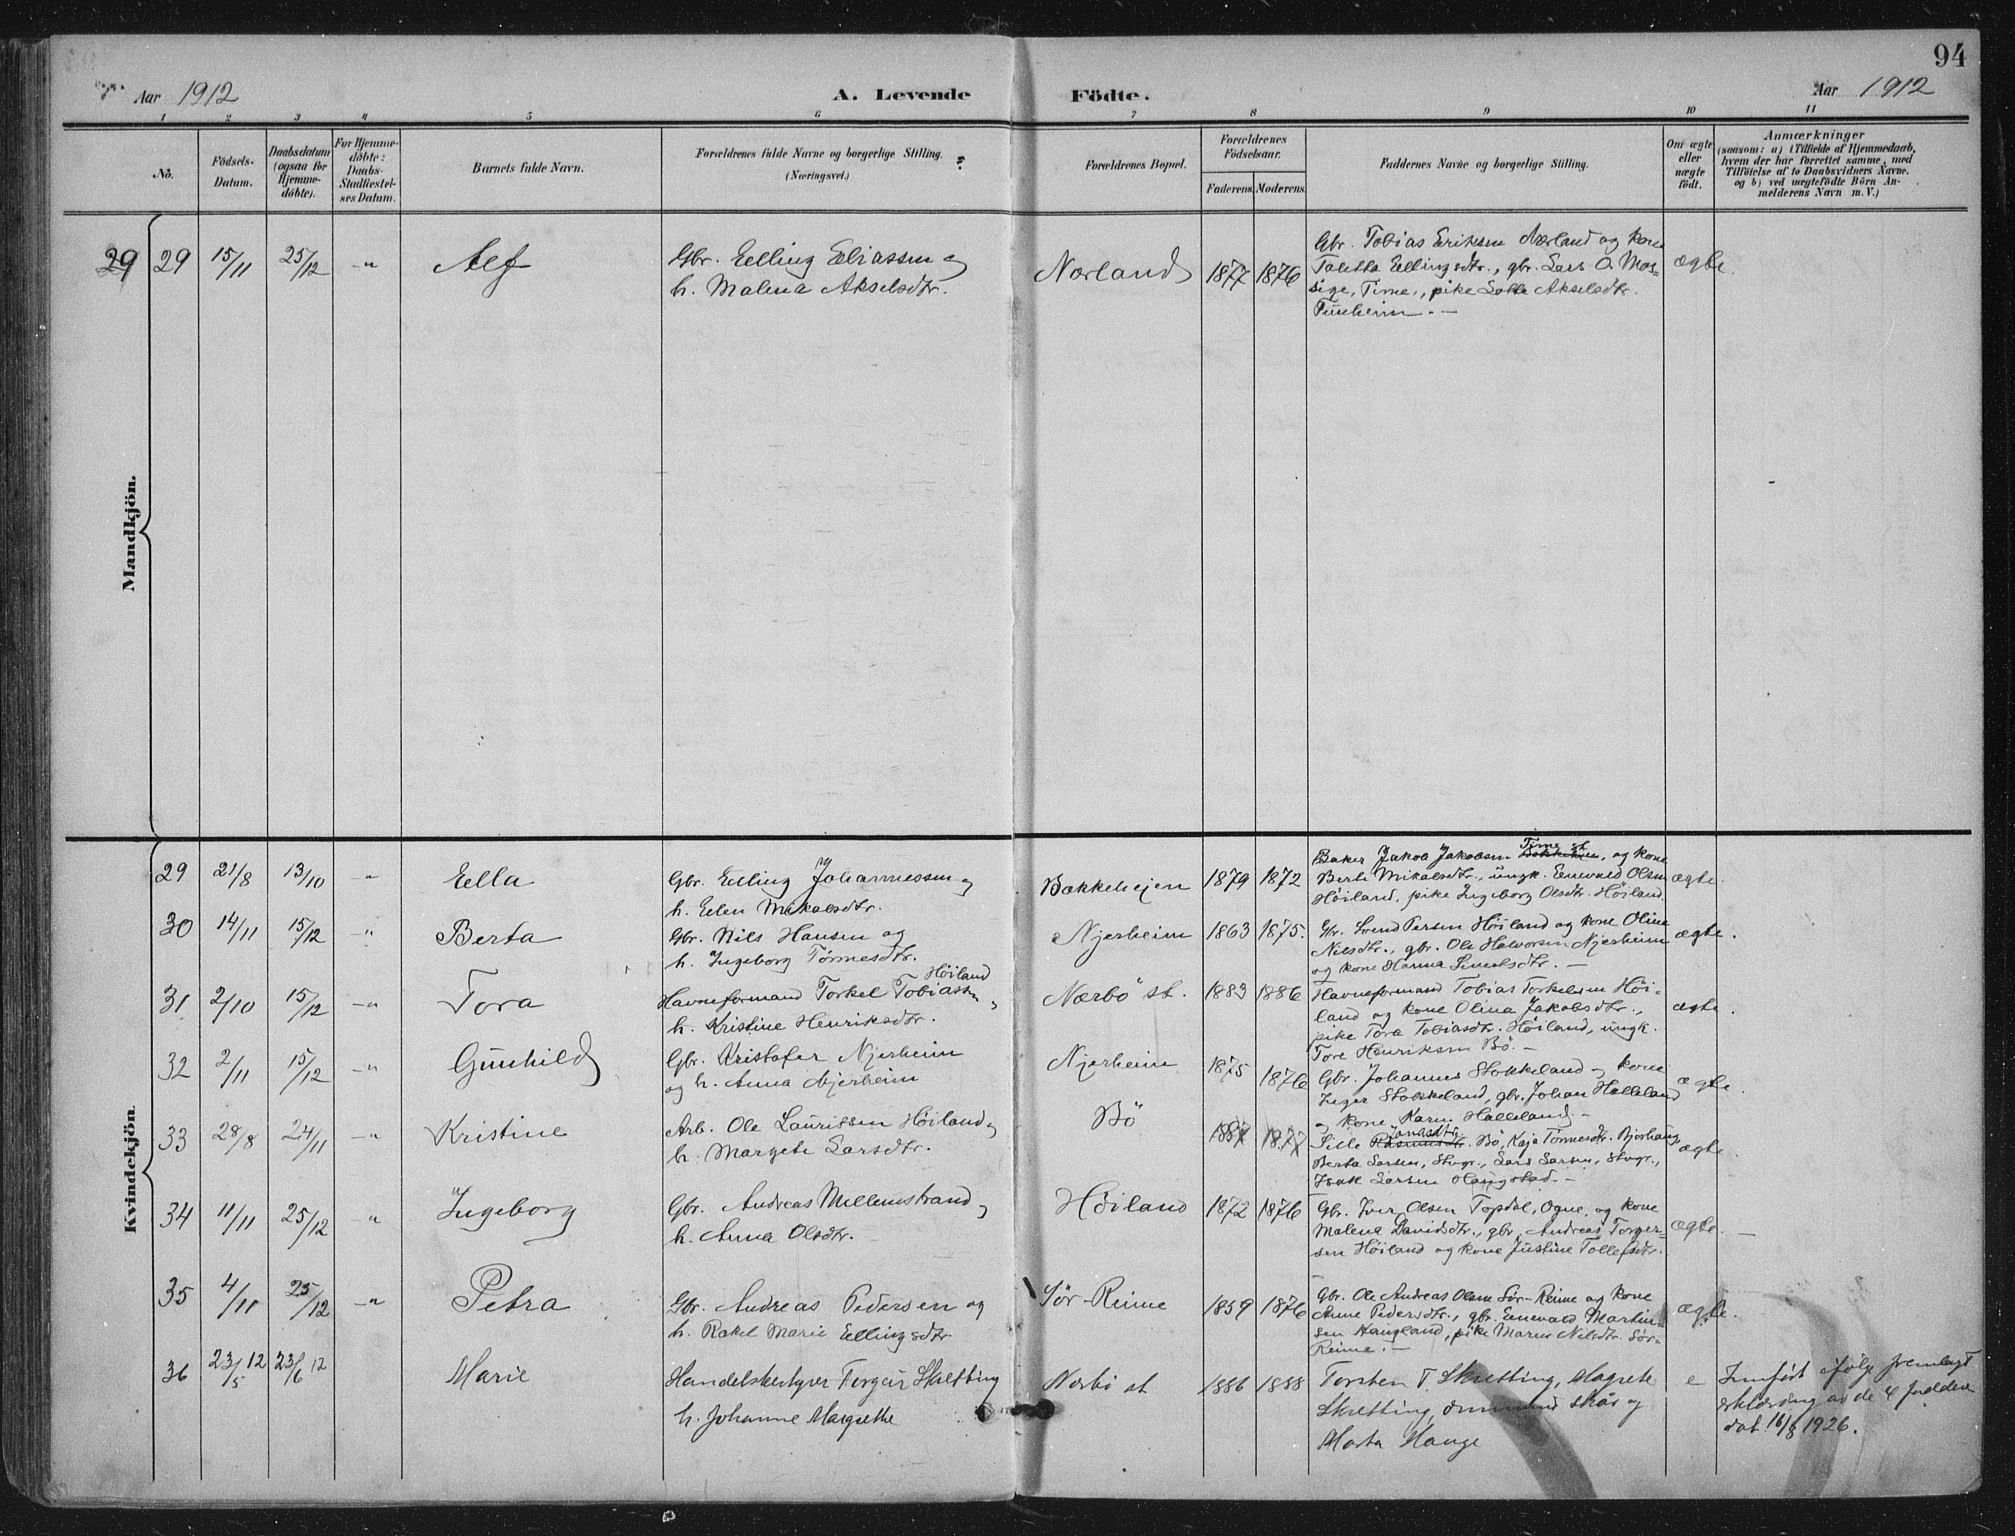 94
Aar 1912
A. Levende Födte.
Aar 1912
1 2 3 4 5 6 7 8 9 10 11
No.
Födsels-
Datum.
Daabsdatum
(ogsaa for
Hjemme-
döbte).
For Hjemme-
döbte:
Daabs-
Stadfæstel-
ses Datum.
Barnets fulde Navn.
Forældrenes fulde Navne og borgerlige Stilling.
(Næringsvei.)
Forældrenes Bopæl.
Forældrenes
Födselsaar.
Faderens. Moderens.
Faddernes Navne og borgerlige Stilling.
Om ægte
eller
uægte
födt.
Anmærkninger
(saasom: a) i Tilfælde af Hjemmedaab,
hvem der har forrettet samme, med
Tilföielse af to Daabsvidners Navne,
og b) ved uægtefödte Börn An-
melderens Navn m. V.)
Mandkjön.
29 29 15/11 25/12 -"- Alf
Gbr. Elling Eliassen og
h. Malena Akselsdtr.
Nærland 1877 1876
Gbr. Tobias Eriksen Nærland og kone
Taletta Ellingsdtr., gbr. Lars O. Mos-
sige, Time, pike Salla Akselsdtr.
Tunheim.—
ægte.
Kvindekjön.
29 21/8 13/10 " Ella
Gbr. Elling Johannessen og
h. Elen Mikalsdtr.
Bakkehejen 1879 1872
Baker Jakob Jakobsen Time st. Bakkehejen, og kone
Berte Mikalsdtr., ungk. Enevald Olsen
Höiland, pike Ingeborg Olsdtr. Höiland.
ægte.
30 14/11 15/12 -"- Berta
Gbr. Nils Hansen og
h. Ingeborg Törresdtr.
Njerheim 1863 1875.
Gbr. Svend Persen Höiland og kone Oline
Nilsdtr., gbr. Ole Halvorsen Njerheim
og kone Hanna Sivertsdtr.—
ægte.
31 2/10 15/12 -"- Tora
Havneformand Torkel Tobiassen Höiland og
h. Kristine Henriksdtr.
Nærbö st. 1883 1886
Havneformand Tobias Torkelsen Höi-
land og kone Olina Jakobsdtr.,
pike Tora Tobiasdtr. Höiland, ungk.
Tore Henriksen Bö.—
ægte.
32 2/11 15/12 -"- Gunhild
Gbr. Kristofer Njerheim
og h. Anna Njerheim
Njerheim 1875 1876
Gbr. Johannes Stokkeland og kone
Inger Stokkeland, gbr. Johan Halleland
og kone Karen Halleland.—
ægte.
33 28/8 24/11 -"- Kristine
Arb. Ole Lauritsen Höiland og
h. Margete Larsdtr.
Bö 1887 1877
Sille Rasmusdtr. Jonasdtr. Bö, Kaja Törresdtr. Bjorhaug,
Berta Larsen, Stvgr., Lars Larsen, Stvgr.,
Isak Larsen Haugstad.—
ægte.
34 11/11 25/12 " Ingeborg
Gbr. Andreas Mellemstrand og
h. Anna Olsdtr.
Höiland 1872 1876
Gbr. Iver Olsen Topdal, Ogne, og kone
Malena Davidsdtr., gbr. Andreas Torger-
sen Höiland og kone Justine Tollefsdtr.
ægte.
35 4/11 25/12 -"- Petra
Gbr. Andreas Pedersen og
h. Rakel Marie Ellingsdtr
Sör-Reime 1859 1876
Gbr. Ole Andreas Olsen Sör-Reime og kone
Anne Pedersdtr., gbr. Enevald Martin-
sen Haugland, pike Maren Nilsdtr. Sör-
Reime.—
ægte.
36 23/5 12 23/6 12 Marie
Handelsbestyrer Torger Skretting
h. Johanne Margrethe
Nærbö st 1886 1888
Torsten T. Skretting, Magrete
Skretting, Ommund Skår og
Marta Hauge
e
Innført ifölg fremlagt
erklæring av de 4 faddere
dat. 16/8 1926.